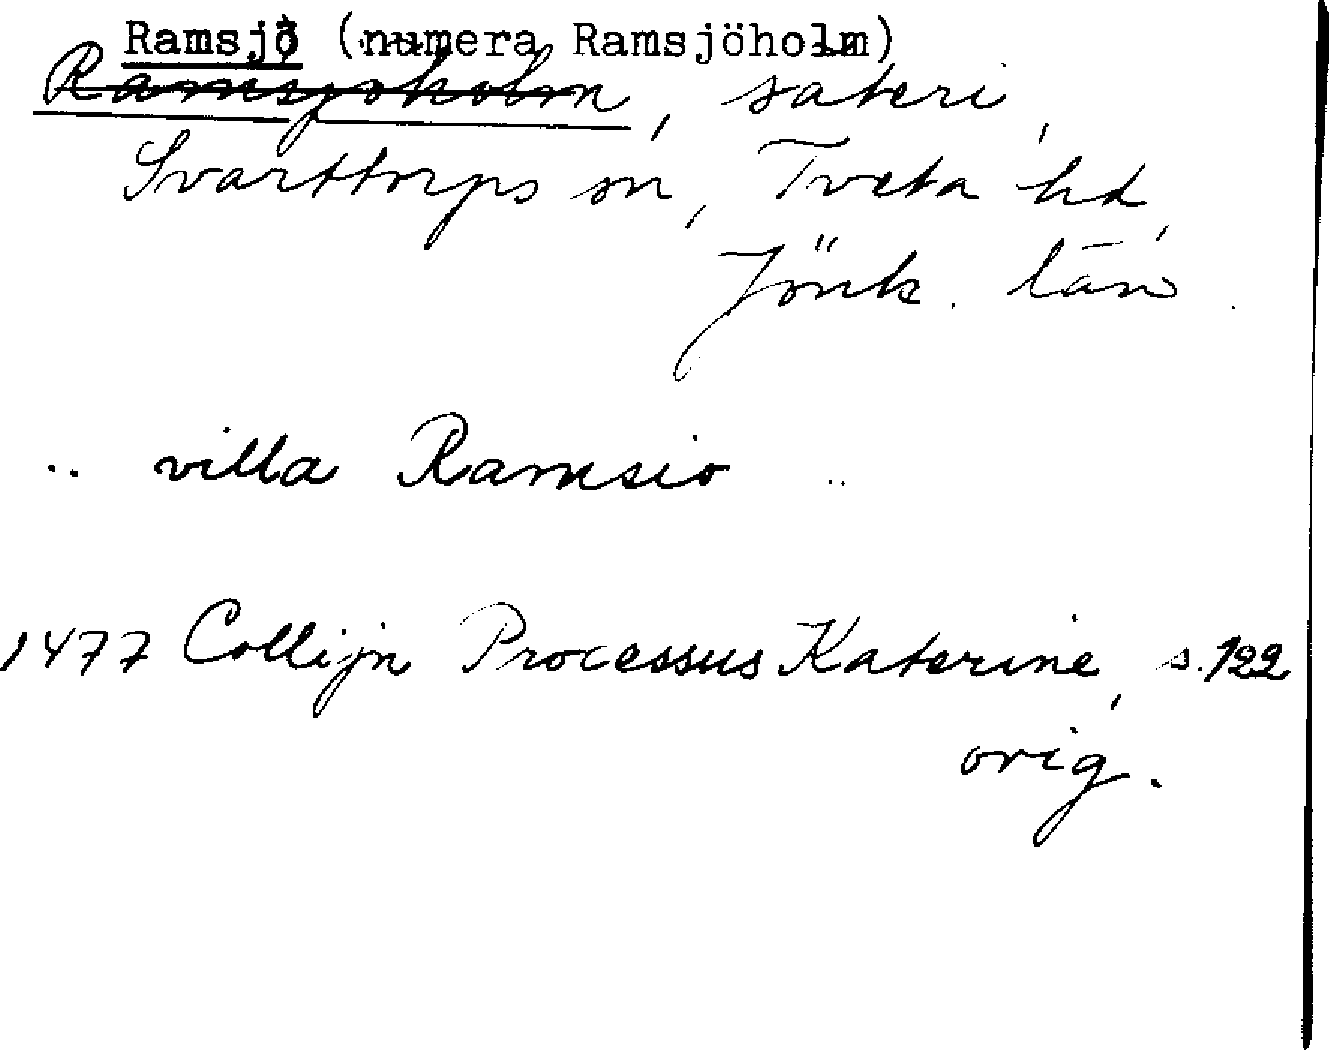 Ramsjö (numera Ramsjöholm)
Ramsjöholm, säteri,
Svarttorps sn, Tveta hd,
Jönk. län.
.. villa Ramsio ..
1477 Collijn Processus Katerine, s. 122
orig.